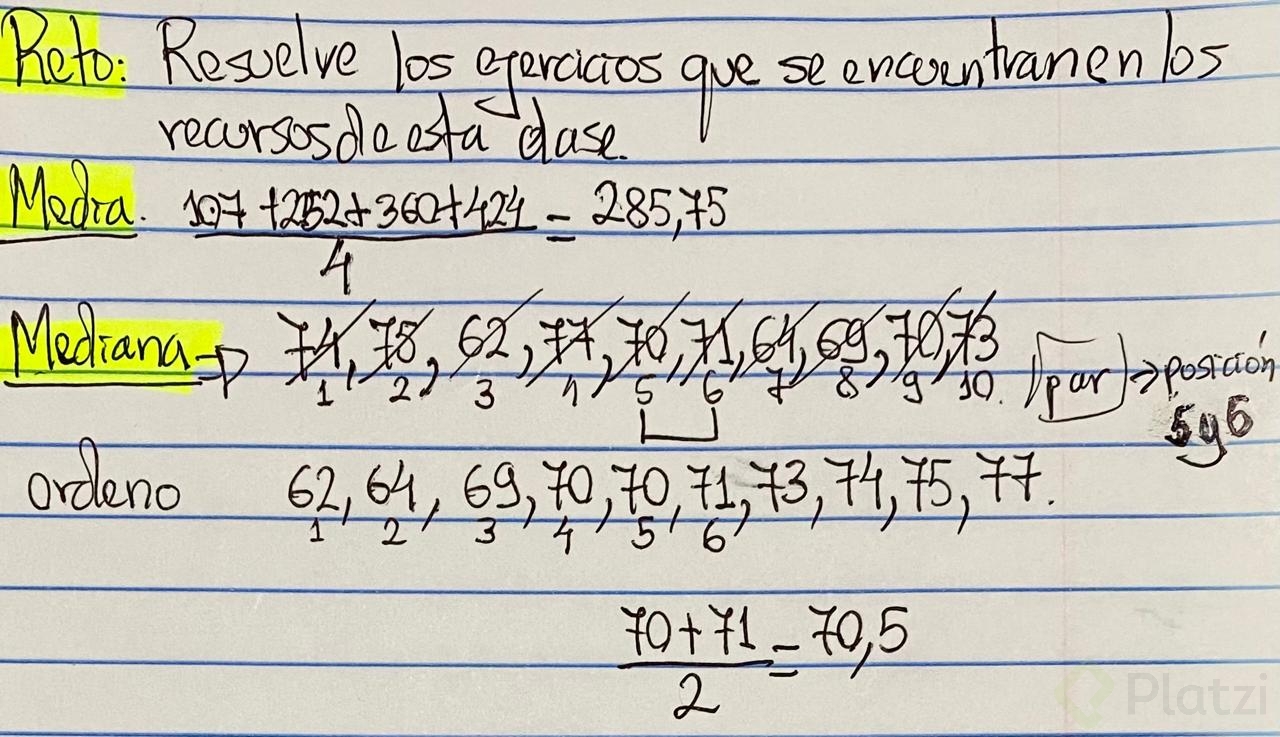 Reto: Resuelve los ejercicios que se encuentran en los
recursos de esta clase.
Media. 107 + 252 + 360 + 424 = 285,75
4
Mediana → 74, 75, 62, 77, 70, 71, 64, 69, 70, 73 par → posición
1 2 3 4 5 6 7 8 9 10. 5 y 6
ordeno 62, 64, 69, 70, 70, 71, 73, 74, 75, 77.
1 2 3 4 5 6
70 + 71 = 70,5
2
Platzi